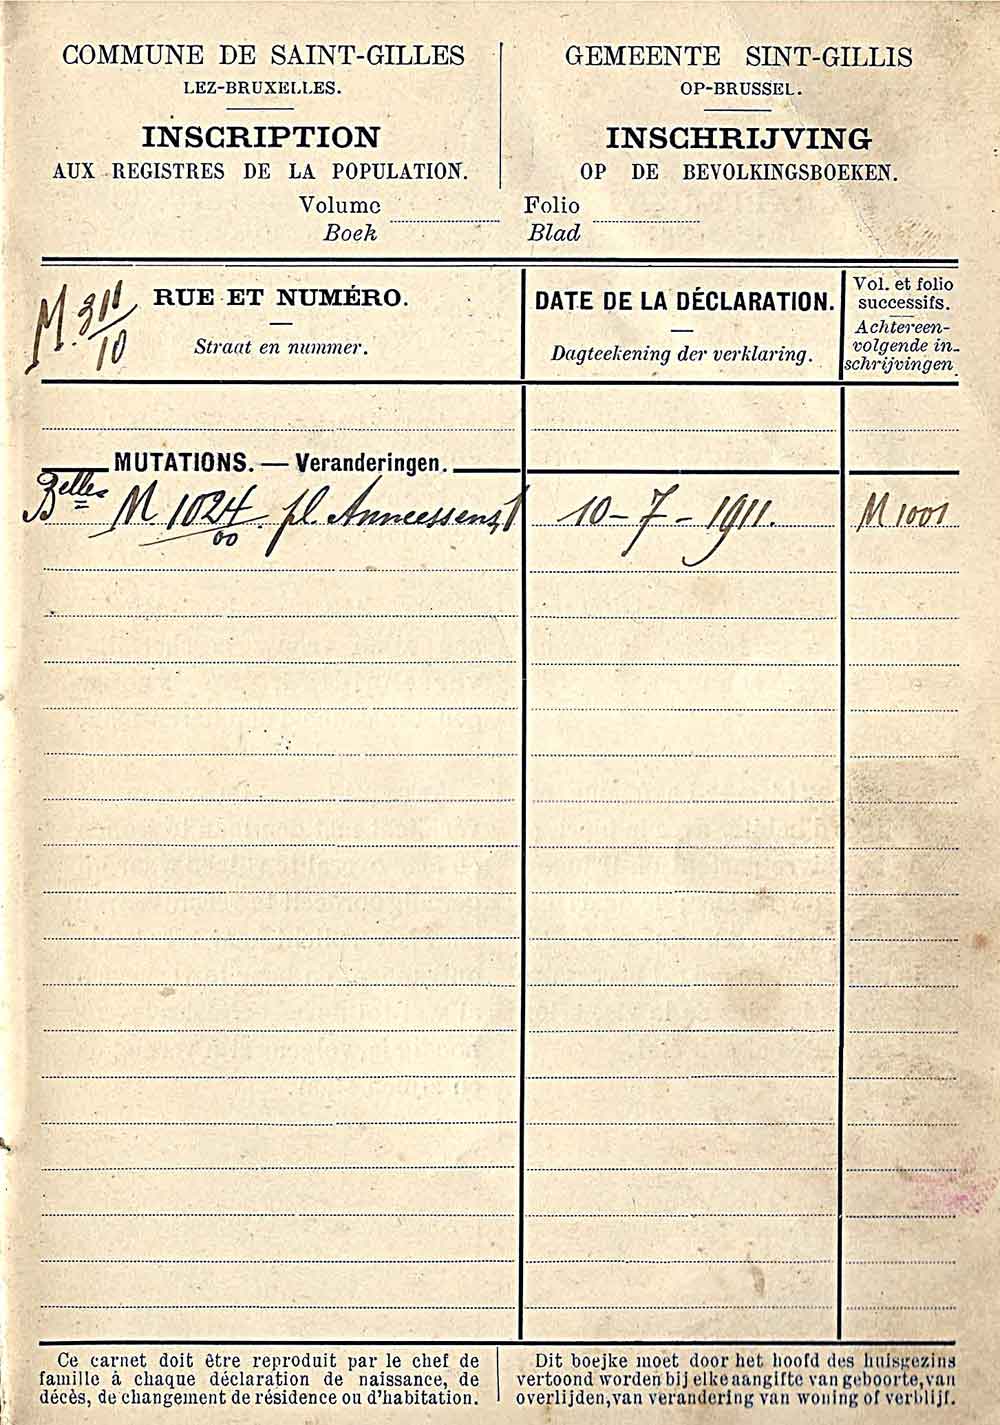 COMMUNE DE SAINT-GILLES
LEZ-BRUXELLES.
INSCRIPTION
AUX REGISTRES DE LA POPULATION.
GEMEENTE SINT-GILLIS
OP-BRUSSEL.
INSCHRIJVING
OP DE BEVOLKINGSBOEKEN.
Volume
Boek
Folio
Blad
M. 311/10
RUE ET NUMÉRO.
Straat en nummer.
DATE DE LA DÉCLARATION.
Dagteekening der verklaring.
Vol. et folio
successifs.
Achtereen-
volgende in-
schrijvingen
MUTATIONS. — Veranderingen.
Bxelles M 1024/00 pl. Anneessens, 1 10-7-1911. M 1001
Ce carnet doit être reproduit par le chef de
famille à chaque déclaration de naissance, de
décès, de changement de résidence ou d'habitation.
Dit boejke moet door het hoofd des huisgezins
vertoond worden bij elke aangifte van geboorte, van
overlijden, van verandering van woning of verblijf.